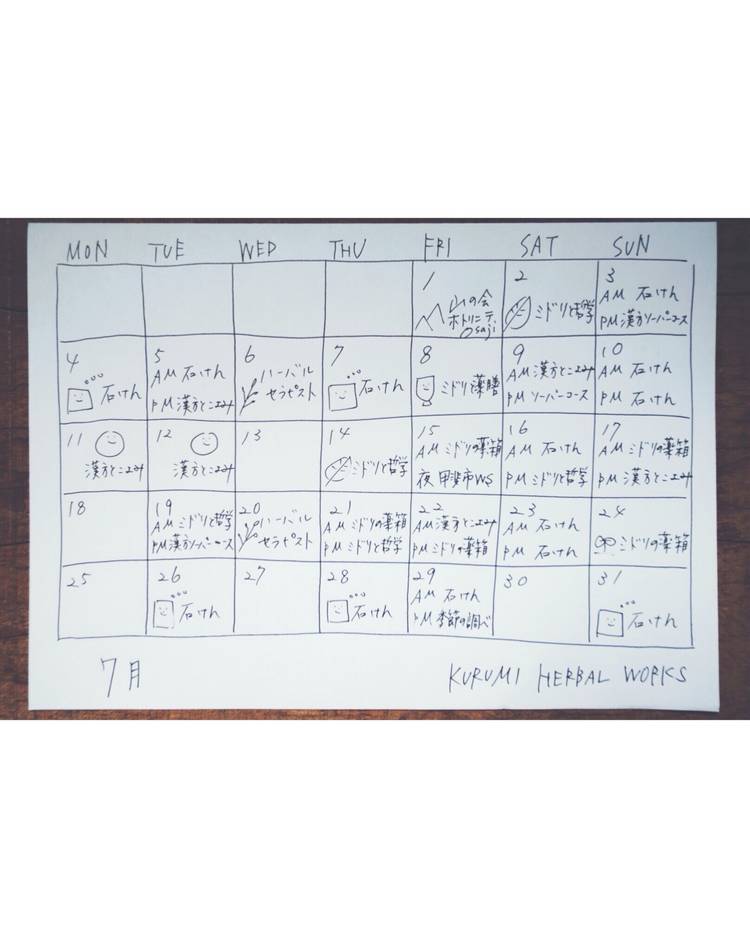 MON TUE WED THU FRI SAT SUN
1
山の会
ホトリニテ
Osaji
2
ミドリと哲学
3
AM 石けん
PM 漢方ソーパーコース
4
石けん
5
AM 石けん
PM 漢方とこよみ
6
ハーバル
セラピスト
7
石けん
8
ミドリ薬膳
9
AM 漢方とこよみ
PM ソーパーコース
10
AM 石けん
PM 石けん
11
漢方とこよみ
12
漢方とこよみ
13
14
ミドリと哲学
15
AM ミドリの薬箱
夜 甲斐市WS
16
AM 石けん
PM ミドリと哲学
17
AM ミドリの薬箱
PM 漢方とこよみ
18
19
AM ミドリと哲学
PM 漢方ソーパーコース
20
ハーバル
セラピスト
21
AM ミドリの薬箱
PM ミドリと哲学
22
AM 漢方とこよみ
PM ミドリの薬箱
23
AM 石けん
PM 石けん
24
ミドリの薬箱
25
26
石けん
27
28
石けん
29
AM 石けん
PM 季節の調べ
30
31
石けん
7月
KURUMI HERBAL WORKS